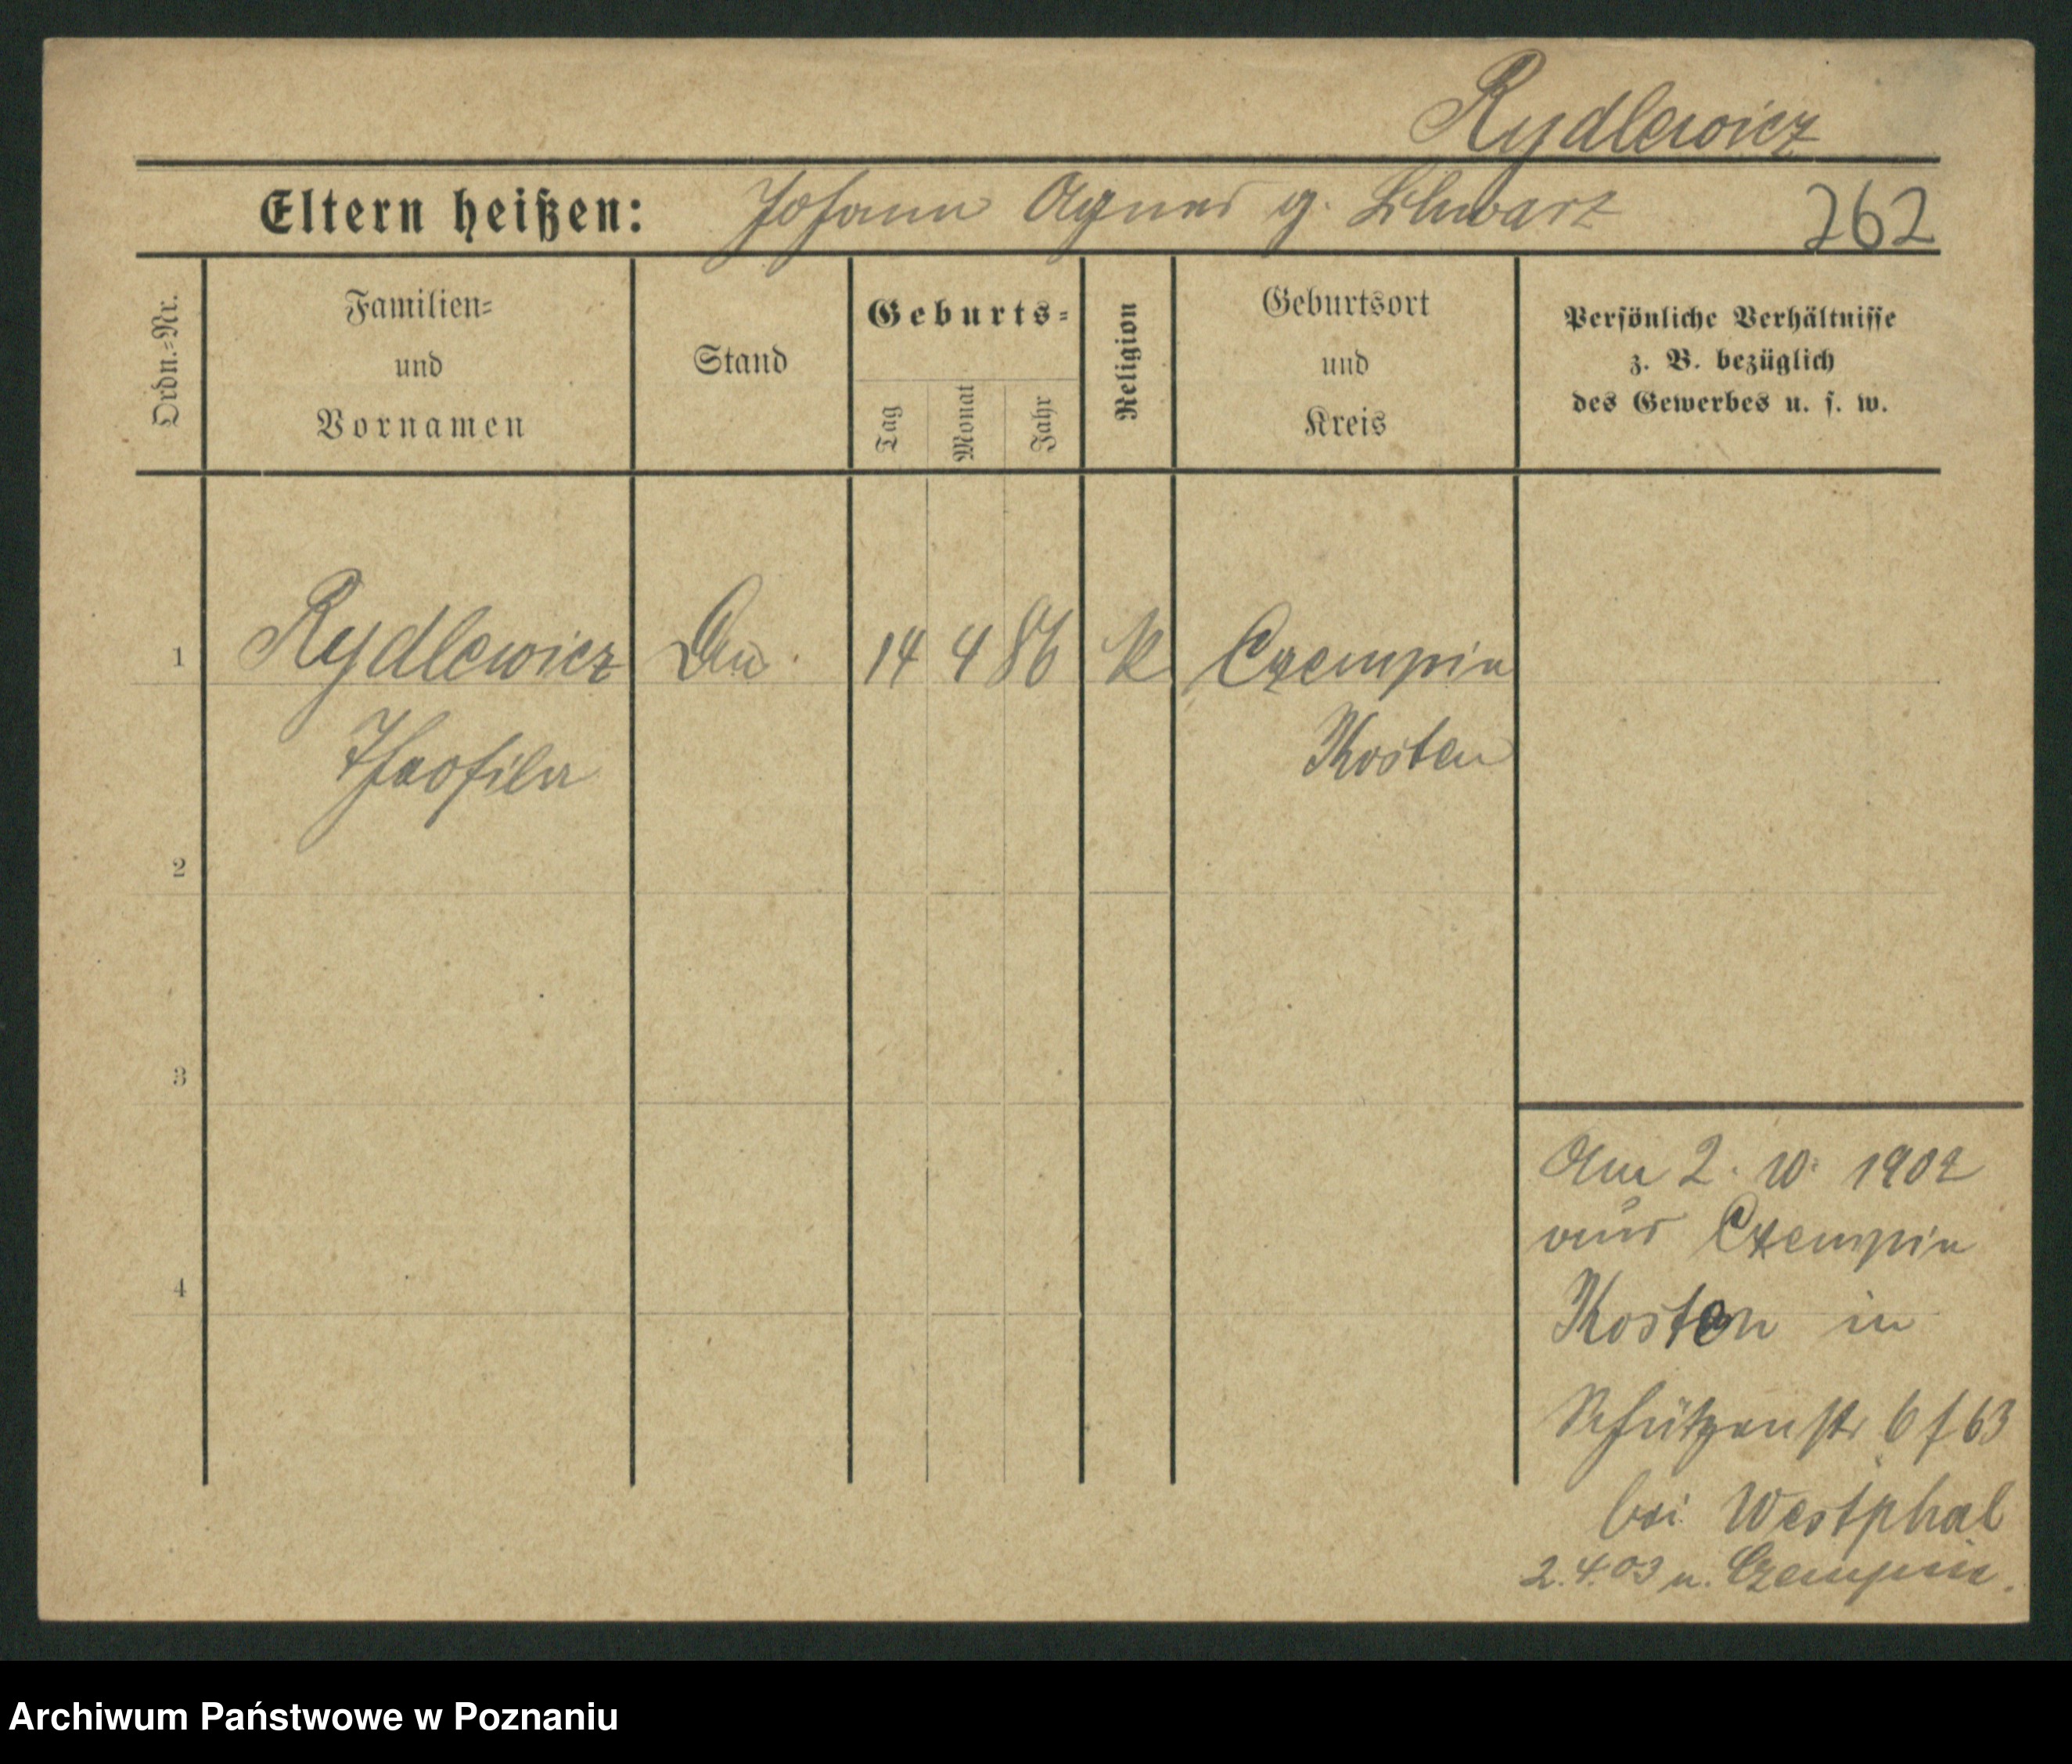 Rydlewicz
Eltern heißen: Johann Agnes g. Schwarz 262
Ordn.=Nr.
Familien=
und
Vornamen
Stand
Geburts=
Tag
Monat
Jahr
Religion
Geburtsort
und
Kreis
Persönliche Verhältnisse
z. B. bezüglich
des Gewerbes u. s. w.
1 Rydlewicz 14 4 86 k Czempin
Theofila Kosten
2
3
4
Am 2. 10. 1902
aus Czempin
Kosten in
Schützenstr 6 f 63
bei Westphal
2.4.03 n. Czempin.
Archiwum Państwowe w Poznaniu